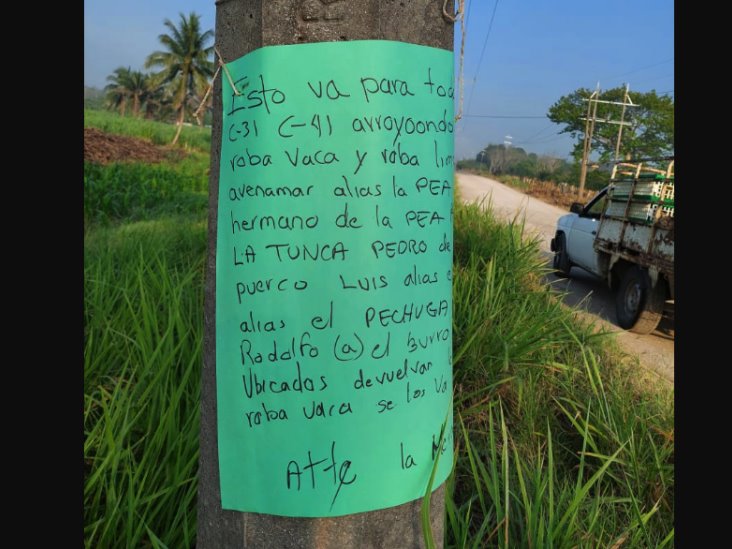 Esto va para tod
C-31 C-41 arroyoondo
roba vaca y roba lim
avenamar alias la PEA
hermano de la PEA
LA TUNCA PEDRO de
puerco LUIS alias e
alias el PECHUGA
Rodolfo (a) el burro
Ubicados devuelvan
roba vaca se los va
Atte la Me